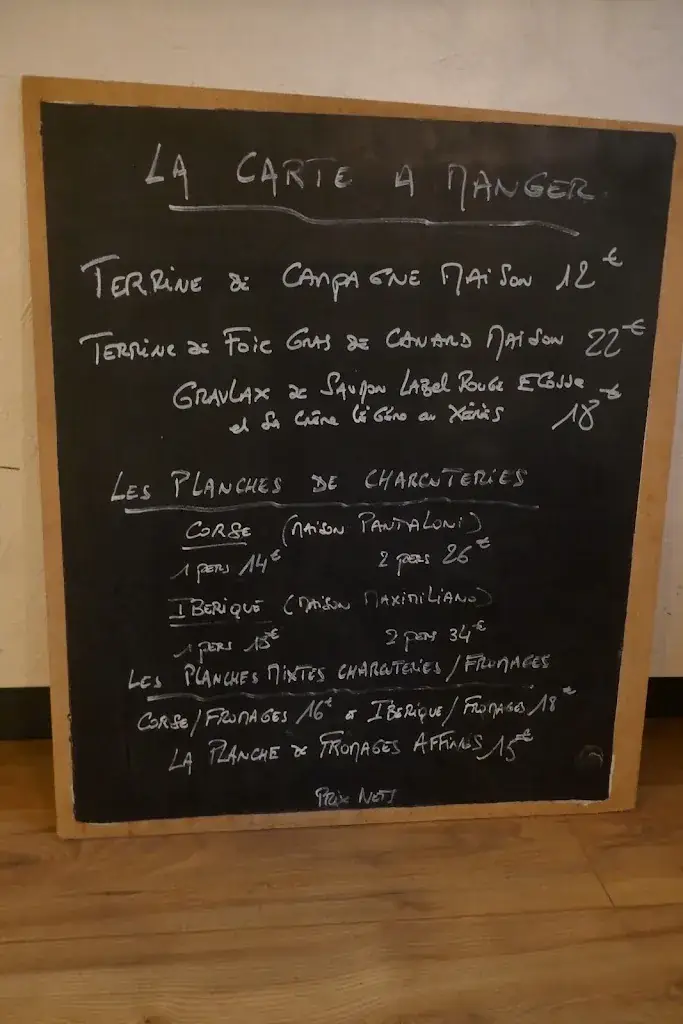 LA CARTE A MANGER
TERRINE DE CAMPAGNE MAISON 12€
TERRINE DE FOIE GRAS DE CANARD MAISON 22€
GRAVLAX DE SAUMON LABEL ROUGE ECOSSE
et sa crème légère au XÉRÈS 18€
LES PLANCHES DE CHARCUTERIES
CORSE (MAISON PANTALONI)
1 PERS 14€ 2 PERS 26€
IBERIQUE (MAISON MAXIMILIANO)
1 PERS 2 PERS 34€
LES PLANCHES MIXTES CHARCUTERIES/FROMAGES
CORSE/FROMAGES 16€ IBERIQUE/FROMAGES 18€
LA PLANCHE DE FROMAGES AFFINÉS 15€
PRIX NETS